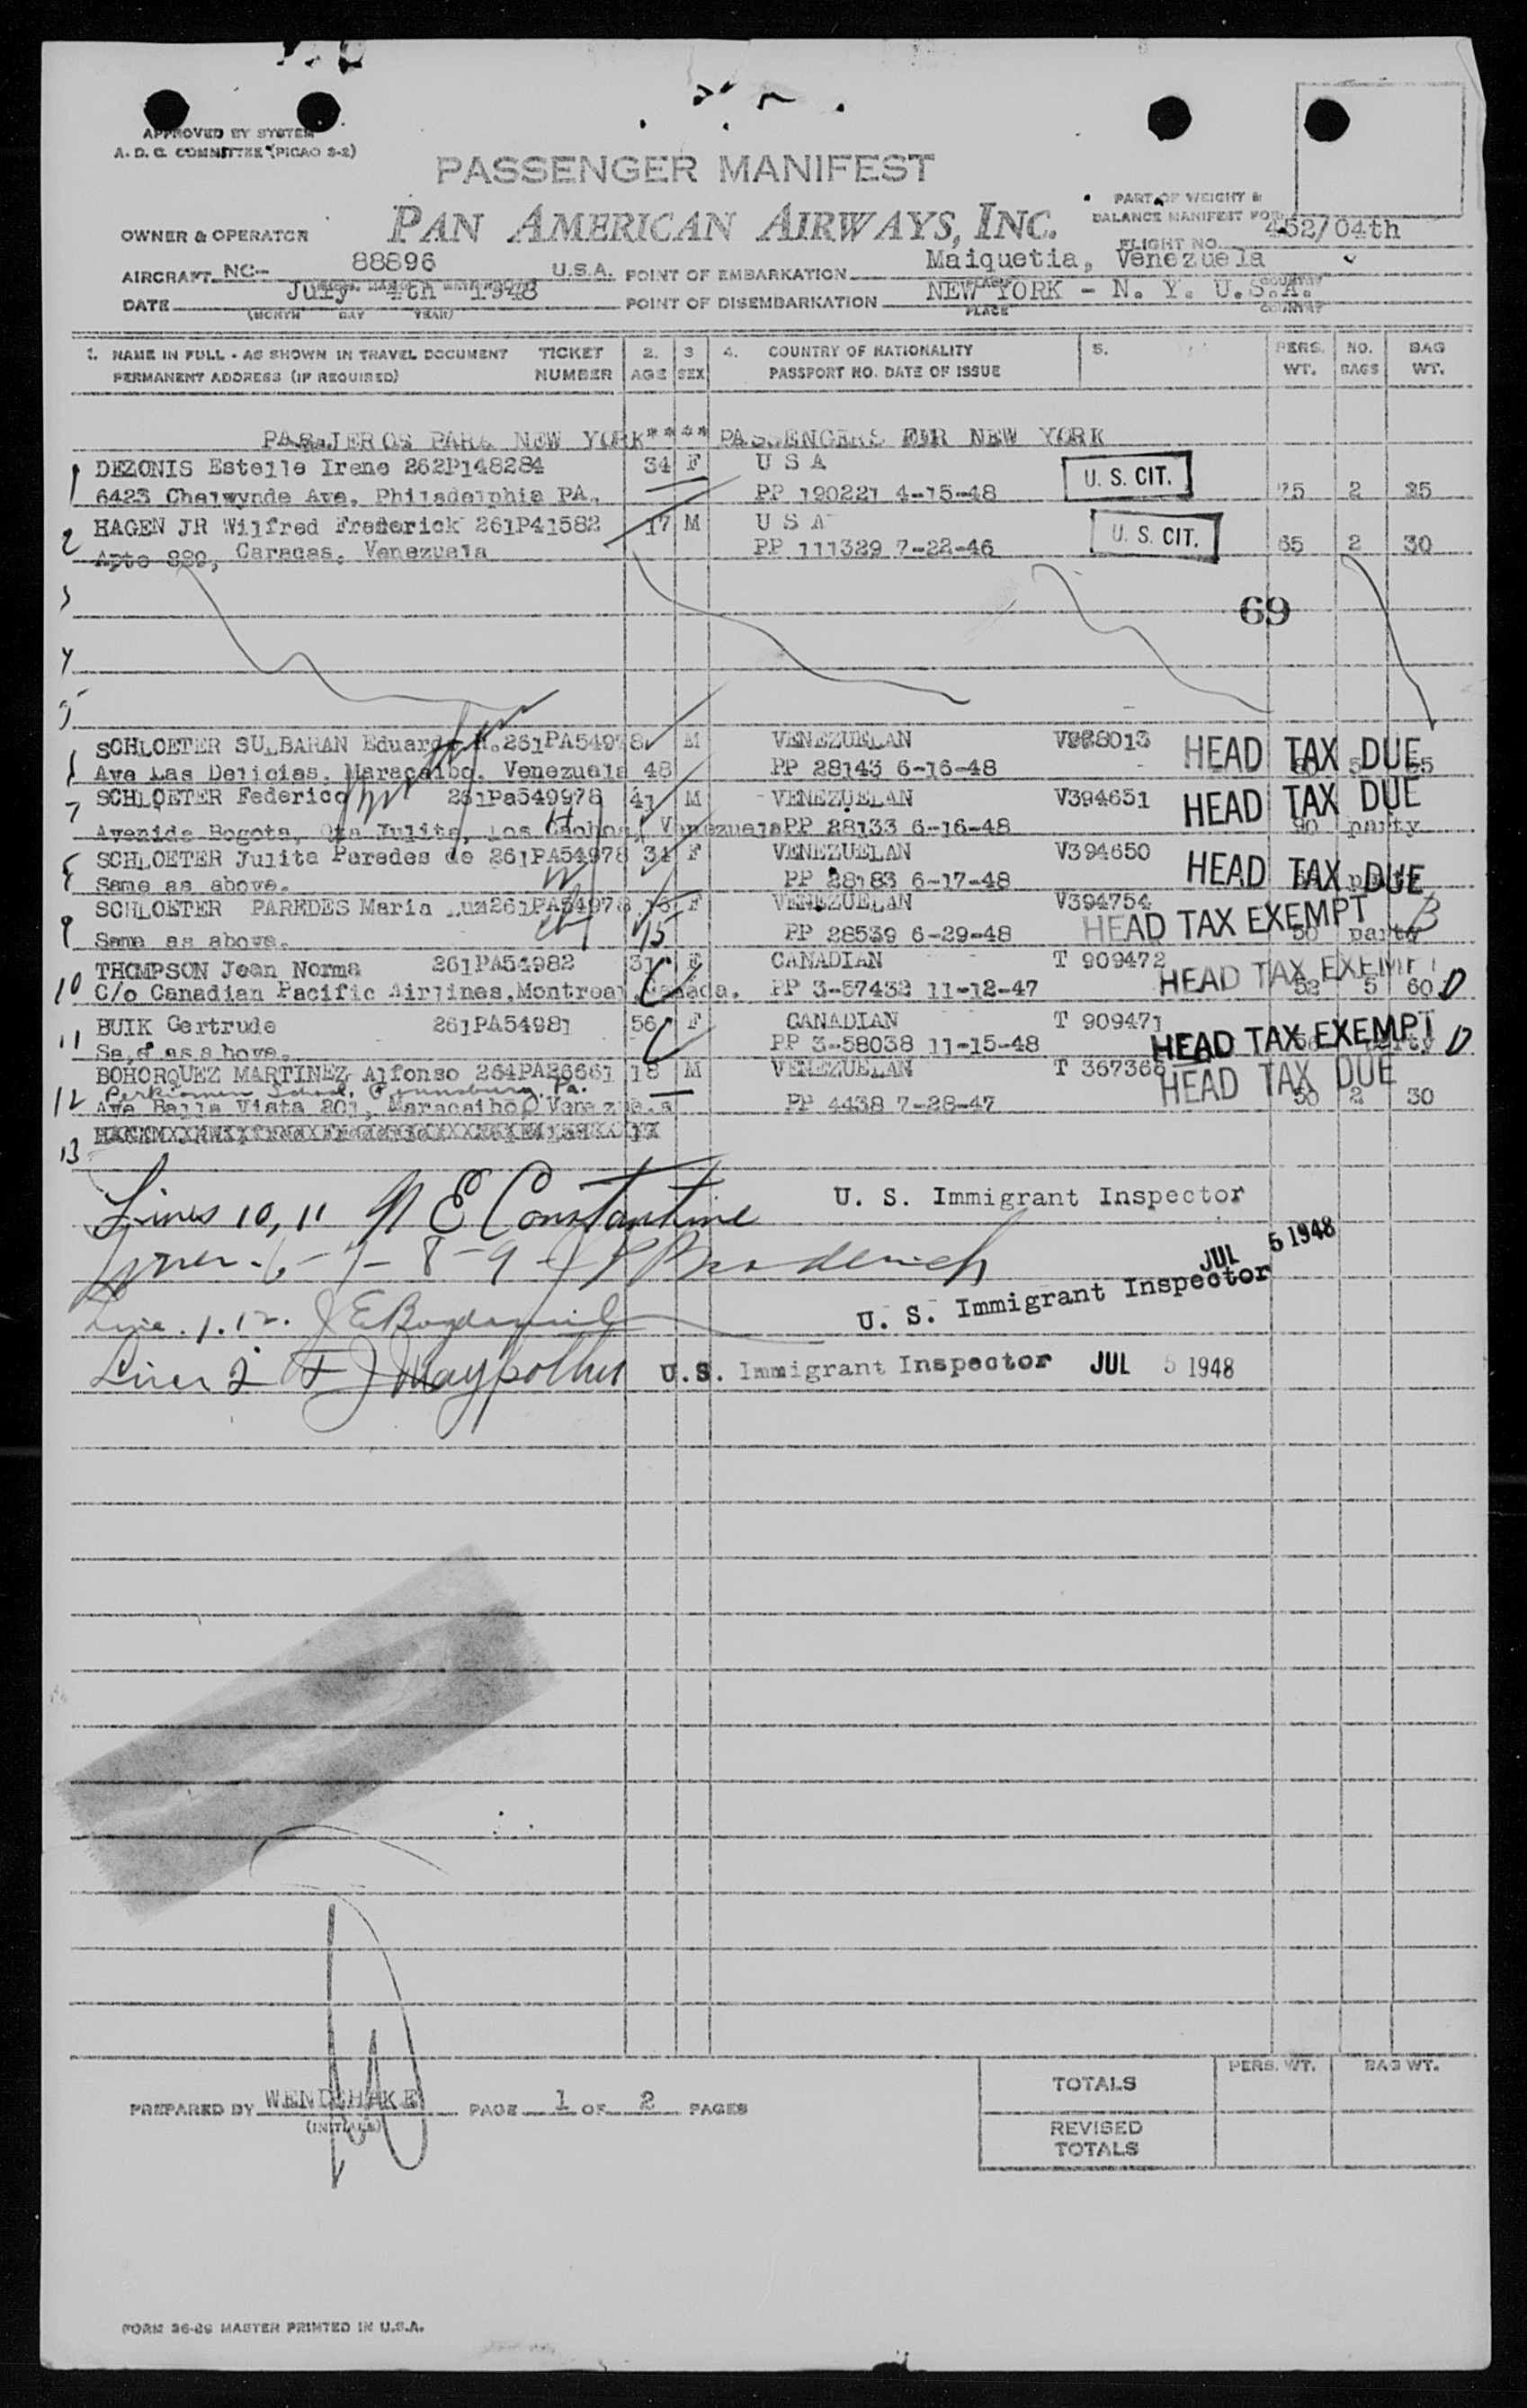 APPROVED BY SYSTEM
A. D. C. COMMITTEE (PICAO S-2)
PASSENGER MANIFEST
PART OF WEIGHT &
BALANCE MANIFEST FOR
OWNER & OPERATOR PAN AMERICAN AIRWAYS, INC. FLIGHT NO. 452/04th
AIRCRAFT NC-- 88896 U.S.A. POINT OF EMBARKATION Maiquetia, Venezuela
DATE July 4th 1948 POINT OF DISEMBARKATION NEW YORK - N. Y. U.S.A.
(MONTH DAY YEAR) PLACE COUNTRY
1. NAME IN FULL - AS SHOWN IN TRAVEL DOCUMENT TICKET 2. 3 4. COUNTRY OF NATIONALITY 5. PERS. NO. BAG
PERMANENT ADDRESS (IF REQUIRED) NUMBER AGE SEX PASSPORT NO. DATE OF ISSUE WT. BAGS WT.
PASAJEROS PARA NEW YORK**** PASSENGERS FOR NEW YORK
1 DEZONIS Estelle Irene 262P148284 34 F U S A U. S. CIT.
6423 Chelwynde Ave. Philadelphia PA. PP 190221 4-15-48 75 2 35
2 HAGEN JR Wilfred Frederick 261P41582 17 M U S A U. S. CIT.
Apto 889, Caracas, Venezuela PP 111329 7-22-46 65 2 30
3 69
4
5
SCHLOETER SULBARAN Eduardo 261PA54978 M VENEZUELAN HEAD TAX DUE
Ave Las Delicias, Maracaibo, Venezuela 48 PP 28143 6-16-48
7 SCHLOETER Federico 261Pa549978 41 M VENEZUELAN V394651 HEAD TAX DUE
Avenida Bogota, Los Caobos, Venezuela PP 28133 6-16-48 90 party
8 SCHLOETER Julita Paredes de 261PA54978 31 F VENEZUELAN V394650 HEAD TAX DUE
Same as above. PP 28183 6-17-48
9 SCHLOETER PAREDES Maria Luz 261PA54978 F VENEZUELAN V394754 HEAD TAX EXEMPT B
Same as above. 15 PP 28539 6-29-48 50 party
10 THOMPSON Jean Norma 261PA54982 31 F CANADIAN T 909472 HEAD TAX EXEMPT
C/o Canadian Pacific Airlines, Montreal, Canada. PP 3-57432 11-12-47 52 5 60 D
11 BUIK Gertrude 261PA54981 56 F CANADIAN T 909471 HEAD TAX EXEMPT D
Sa,e as above. PP 3-58038 11-15-48
BOHORQUEZ MARTINEZ Alfonso 264PA26661 18 M VENEZUELAN T 367368 HEAD TAX DUE
Perkiomen School, Pennsburg, Pa.
12 Ave Bella Vista 201, Maracaibo, Venezuela PP 4438 7-28-47 50 2 30
13
Lines 10, 11 N E Constantine U. S. Immigrant Inspector
Lines - 6 - 7 - 8 - 9 - J P Broderick JUL 5 1948
U. S. Immigrant Inspector
Line. 1. 12.
Line 2 U.S. Immigrant Inspector JUL 5 1948
PREPARED BY WENDEHAKE PAGE 1 OF 2 PAGES
(INITIALS)
PERS. WT. BAG WT.
TOTALS
REVISED
TOTALS
FORM 36-29 MASTER PRINTED IN U.S.A.